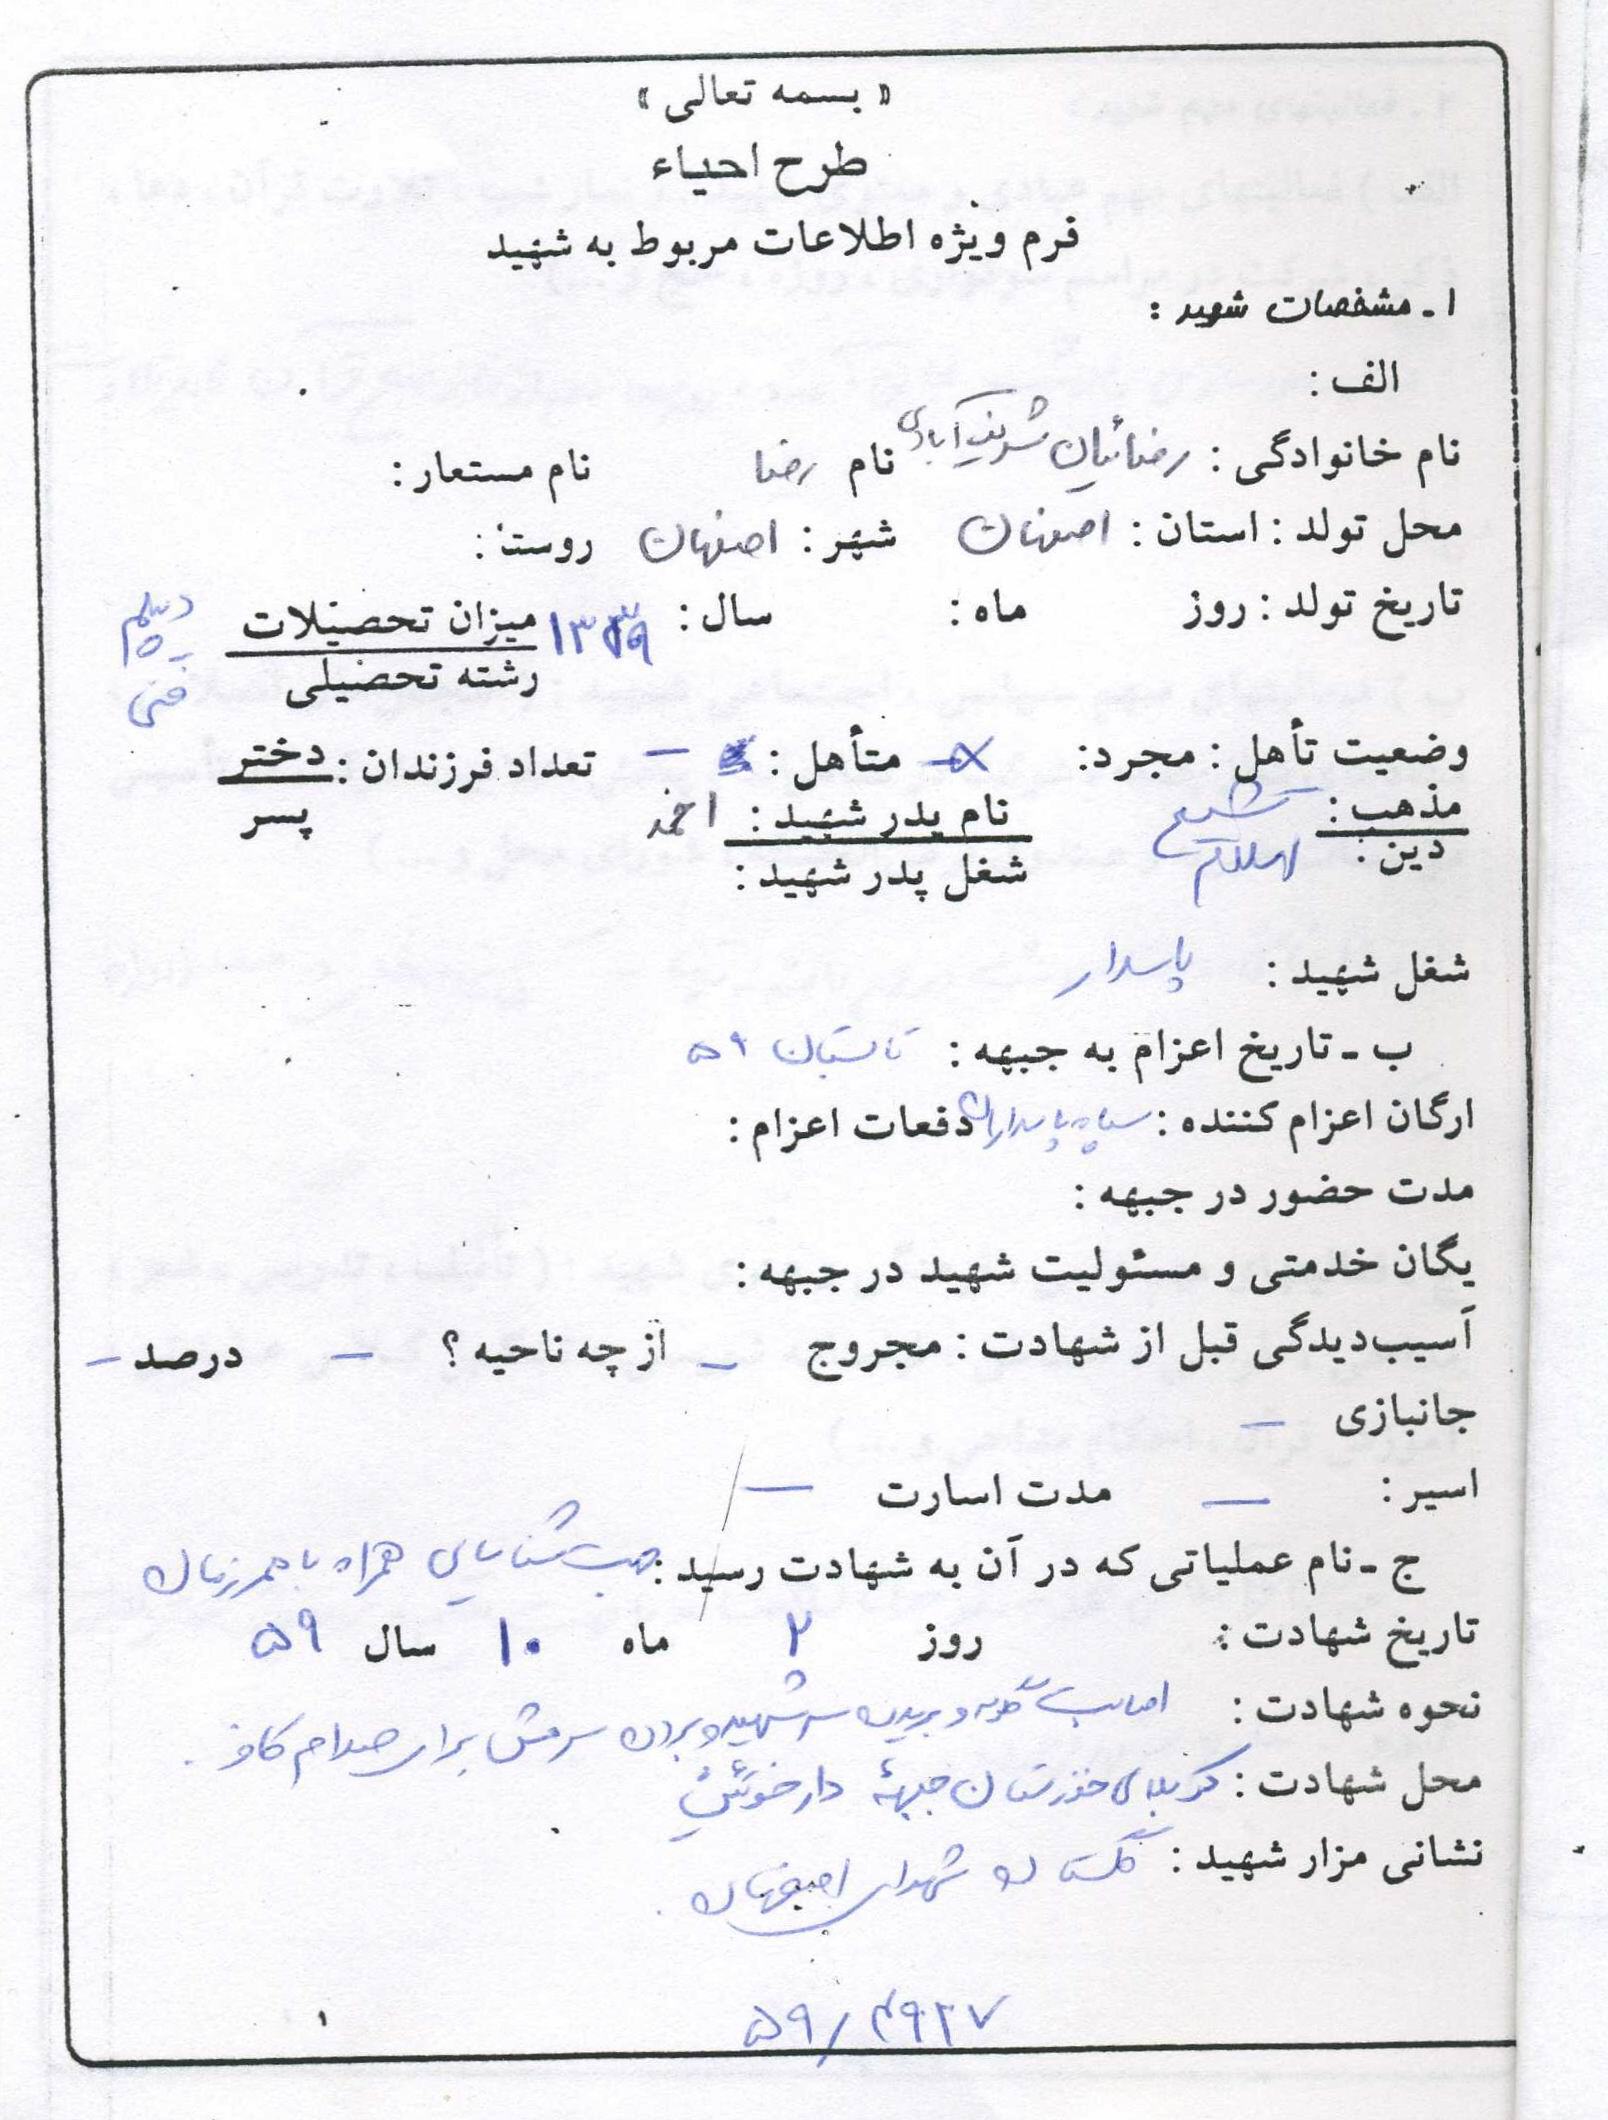 « بسمه تعالی »
طرح احیاء
فرم ویژه اطلاعات مربوط به شهید
۱ ـ مشخصات شهید :
الف :
نام خانوادگی : رضائیان شریف آبادی نام رضا نام مستعار :
محل تولد : استان : اصفهان شهر : اصفهان روستا :
تاریخ تولد : روز ماه : سال : ۱۳۳۹ میزان تحصیلات دیپلم
رشته تحصیلی فنی
وضعیت تأهل : مجرد: × متأهل : – تعداد فرزندان : دختر
پسر
مذهب : تشیع نام پدر شهید : احمد
دین : اسلام شغل پدر شهید :
شغل شهید : پاسدار
ب ـ تاریخ اعزام به جبهه : تابستان ۵۹
ارگان اعزام کننده : سپاه پاسداران دفعات اعزام :
مدت حضور در جبهه :
یگان خدمتی و مسئولیت شهید در جبهه :
آسیب‌دیدگی قبل از شهادت : مجروح – از چه ناحیه ؟ – درصد –
جانبازی –
اسیر : – مدت اسارت –
ج ـ نام عملیاتی که در آن به شهادت رسید : شناسایی همراه با همرزمان
تاریخ شهادت : روز ۲ ماه ۱۰ سال ۵۹
نحوه شهادت : اصابت گلوله و بریدن سر شهید و بردن سرش برای صدام کافر .
محل شهادت : کربلای خوزستان جبهۀ دارخوئین
نشانی مزار شهید : گلستان شهدای اصفهان .
۵۹/۴۹۲۷
۱